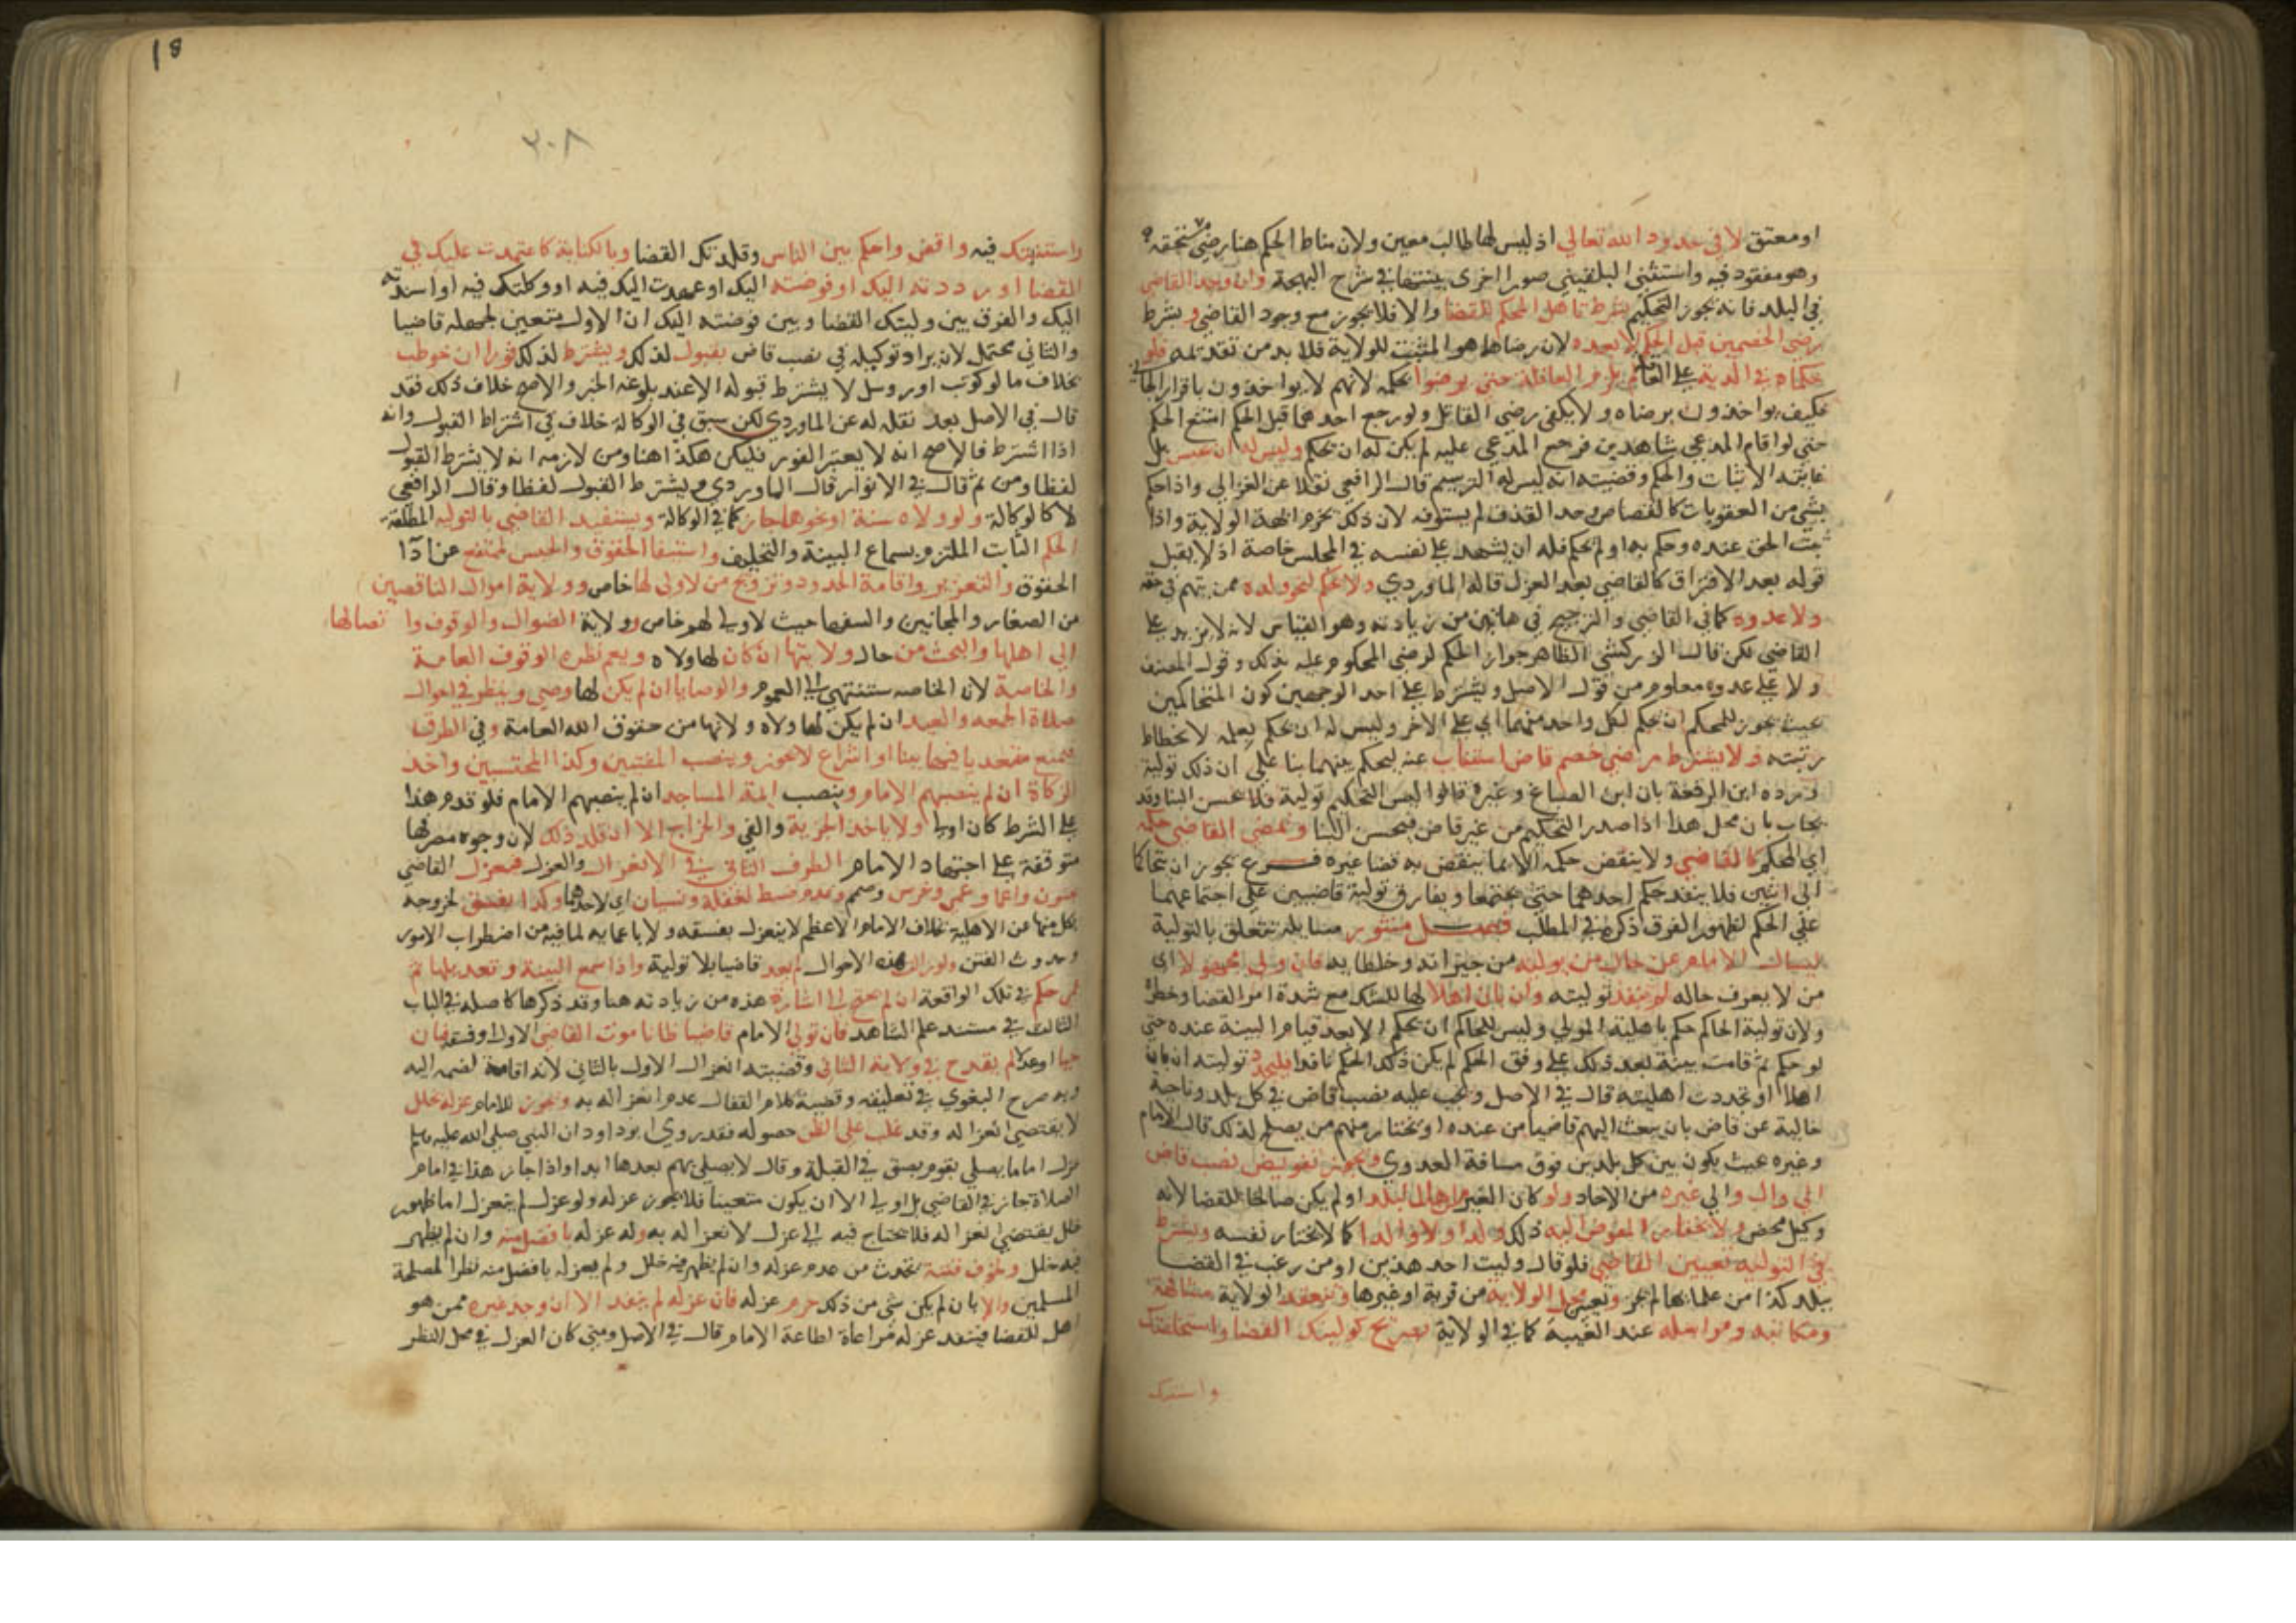 او معتق لا في حدود الله تعالى اذ ليس لها طالب معين ولان مناط الحكم هنا رضى مستحقه
وهو مفقود فيه واستثنى البلقيني صورا اخرى بينتها في شرح البهجة وان وجد القاضي
في البلد فانه يجوز التحكيم بشرط تاهل المحكم للقضا والا فلا يجوز مع وجود القاضي ويشترط
رضى الخصمين قبل الحكم لا بعده لان رضاهما هو المثبت للولاية فلا بد من تقدمه فلو
حكماه في الدية على العاقلة لم يلزم العاقلة حتى يرضوا بحكمه لانهم لا يواخذون باقرار الجاني
فكيف يواخذون برضاه ولا يكفي رضى القاتل ولو رجع احدهما قبل الحكم امتنع الحكم
حتى لو اقام المدعي شاهدين فرجع المدعى عليه لم يكن له ان يحكم وليس له ان يحبس بل
غايته الاثبات والحكم وقضيته انه ليس له الترسيم قال الرافعي نقلا عن الغزالي واذا حكم
بشي من العقوبات كالقصاص وحد القذف لم يستوفه لان ذلك يخرم ابهة الولاية واذا
ثبت الحق عنده وحكم به او لم يحكم فله ان يشهد على نفسه في المجلس خاصة اذ لا يقبل
قوله بعد الافتراق كالقاضي بعد العزل قاله الماوردي ولا يحكم لنحو ولده ممن يتهم في حقه
ولا عدوه كما في القاضي والترجيح في هاتين من زيادته وهو القياس لانه لا يزيد على
القاضي لكن قال الزركشي الظاهر جواز الحكم لرضى المحكوم عليه بذلك وقول المصنف
ولا على عدوه معلوم من قول الاصل ويشترط على احد الوجهين كون المتحاكمين
بحيث يجوز للمحكم ان يحكم لكل واحد منهما اي على الاخر وليس له ان يحكم بعلمه لانحطاط
رتبته ولا يشترط مرضى خصم قاض استناب عنه ليحكم بينهما بنا على ان ذلك تولية
ورده ابن الرفعة بان ابن الصباغ وغيره قالوا ليس التحكيم تولية فلا يحسن البنا وقد
يجاب بان محل هذا اذا صدر التحكيم من غير قاض فيحسن البنا ويمضى القاضي حكمه
اي المحكم كالقاضي ولا ينقض حكمه الا بما ينقض به قضا غيره فرع يجوز ان يتحاكما
الى اثنين فلا ينفذ حكم احدهما حتى يجتمعا ويفارق تولية قاضيين على اجتماعهما
على الحكم لظهور الفرق ذكره في المطلب فصل منثور مسايله تتعلق بالتولية
ليسال الامام عن حال من يوليه من جيرانه وخلطايه فان ولى مجهولا اي
من لا يعرف حاله لم تنفذ توليته وان بان اهلا لها للشك مع شدة امر القضا وخطره
ولان تولية الحاكم حكم باهلية المولى وليس للحاكم ان يحكم الا بعد قيام البينة عنده حتى
لو حكم ثم قامت بينة بعد ذلك على وفق الحكم لم يكن ذلك الحكم نافذا فليجدد توليته ان بان
اهلا او تجددت اهليته قال في الاصل ويجب عليه نصب قاض في كل بلد وناحية
خالية عن قاض بان يبعث اليهم قاضيا من عنده او يختار منهم من يصلح لذلك قال الامام
وغيره بحيث يكون بين كل بلدين فوق مسافة العدوي ويجوز تفويض نصب قاض
الى وال والى غيره من الاحاد ولو كان الغير من اهل البلد او لم يكن صالحا للقضا لانه
وكيل محض ولا يختار المفوض اليه ذلك ولدا ولا والدا كما لا يختار نفسه ويشترط
في التولية تعيين القاضي فلو قال وليت احد هذين او من رغب في القضا
ببلد كذا من علمائها لم يجز وتعيين محل الولاية من قرية او غيرها وتنعقد الولاية مشافهة
ومكاتبة ومراسلة عند الغيبة كما في الولاية بصريح كوليتك القضا واستخلفتك
واستنبتك
18
٣٠٨
واستنبتك فيه واقض واحكم بين الناس وقلدتك القضا وبالكناية كاعتمدت عليك في
القضا او رددته اليك او فوضته اليك او عهدت اليك فيه او وكلتك فيه او اسندته
اليك والفرق بين وليتك القضا وبين فوضته اليك ان الاول يتعين لجعله قاضيا
والثاني محتمل لان يراد توكيله في نصب قاض بقبول لذلك ويشترط لذلك فورا ان خوطب
بخلاف ما لو كوتب او روسل لا يشترط قبوله الا عند بلوغه الخبر والاصح خلاف ذلك فقد
قال في الاصل بعد نقله له عن الماوردي لكن سبق في الوكالة خلاف في اشتراط القبول وانه
اذا اشترط فالاصح انه لا يعتبر الفور فليكن هكذا هنا ومن لازمه انه لا يشترط القبول
لفظا ومن ثم قال في الانوار قال الماوردي ويشترط القبول لفظا وقال الرافعي
لا كالوكالة ولو ولاه سنة او نحوها جاز كما في الوكالة ويستفيد القاضي بالتوليه المطلقة
الحكم البات الملزم وسماع البينة والتحليف واستيفا الحقوق والحبس لممتنع عن ادآ
الحقوق والتعزير واقامة الحدود وتزويج من لا ولي لها خاص وولاية اموال الناقصين
من الصغار والمجانين والسفها حيث لا ولي لهم خاص وولاية الضوال والوقوف وا تصالها
الى اهلها والبحث من حال ولاتها ان كان لها ولاه ويعم نظره الوقوف العامة
والخاصة لان الخاصه ستنتهي الى العموم والوصايا ان لم يكن لها وصي وينظر في احوال
صلاة الجمعه والعيد ان لم يكن لها ولاه ولانها من حقوق الله العامة وفي الطرق
فيمنع متعديا فيها ببنا او اشراع لا يجوز وينصب المفتين وكذا المحتسبين واخذ
الزكاة ان لم ينصبهم الامام وينصب ايمة المساجد ان لم ينصبهم الامام فلو قدم هذا
على الشرط كان اولى ولا ياخذ الجزية والفي والخراج الا ان قلد ذلك لان وجوه مصرفها
متوقفة على اجتهاد الامام الطرف الثاني في الانعزال والعزل فينعزل القاضي
بجنون واغما وعمى وخرس وصمم وعدم ضبط لغفلة ونسيان اي لاحدهما وكذا بفسق لخروجه
بكل منها عن الاهلية بخلاف الامام الاعظم لا ينعزل بفسقه ولا باغمايه لما فيه من اضطراب الامور
وحدوث الفتن ولو زالت هذه الاحوال لم يعد قاضيا بلا تولية واذا سمع البينة وتعديلها ثم
حكم في تلك الواقعة ان لم يحتج الى اشارة هذه من زيادته هنا وقد ذكرها كاصله في الباب
الثالث في مستند علم الشاهد فان تولى الامام قاضيا ظانا موت القاضي الاول او فسقه فبان
حيا او عدلا لم يقدح في ولاية الثاني وقضيته انعزال الاول بالثاني لانه اقامة لضمه اليه
وبه صرح البغوي في تعليقه وقضية كلام القفال عدم انعزاله به ويجوز للامام عزله بخلل
لا يقتضي انعزاله وقد غلب على الظن حصوله فقد روى ابو داود ان النبي صلى الله عليه وسلم
عزل اماما يصلي بقوم بصق في القبلة وقال لا يصلي بهم بعدها ابدا واذا جاز هذا في امام
الصلاة جاز في القاضي بل اولى الا ان يكون متعينا فلا يجوز عزله ولو عزل لم ينعزل اما ظهور
خلل يقتضي انعزاله فلا يحتاج فيه الى عزل لانعزاله به وله عزله بافضل منه وان لم يظهر
فيه خلل ولخوف فتنة تحدث من عدم عزله وان لم يظهر فيه خلل ولم يعزله بافضل منه نظرا لمصلحة
المسلمين والا بان لم يكن شي من ذلك حرم عزله فان عزله لم ينفذ الا ان وجد غيره ممن هو
اهل للقضا فينفذ عزله مراعاة لطاعة الامام قال في الاصل ومتى كان العزل في محل النظر